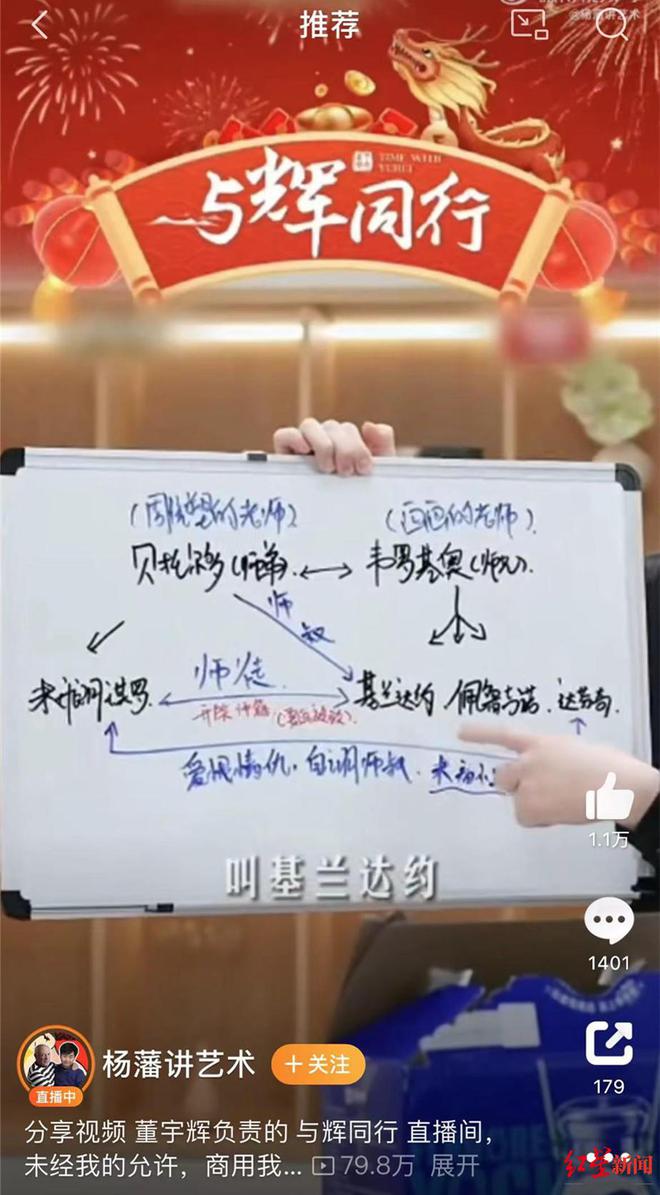 推荐
@杨藩讲艺术
TIME WITH
YUHUI
与辉同行
(雕塑的老师)
(画画的老师)
贝托尔多(师弟)
韦罗基奥(师兄)
师叔
米开朗谋罗
师徒
基兰达约
佩鲁吉诺
达芬奇
爱恨情仇
自认师叔
叫基兰达约
1.1万
1401
179
杨藩讲艺术
+关注
直播中
分享视频 董宇辉负责的 与辉同行 直播间，
未经我的允许，商用我... 79.8万 展开
红星新闻